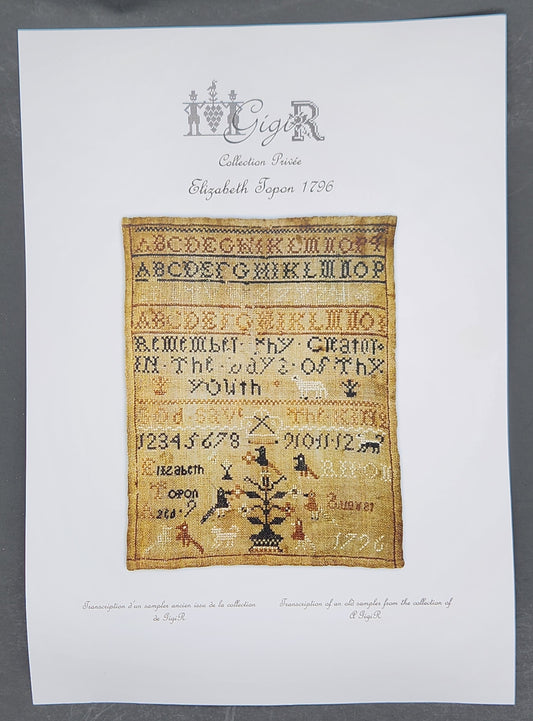 GigiR
Collection Privée
Elizabeth Topon 1796
ABCDEGHIKLMNOP
ABCDEFGHIKLMNOP
ABCDEFGHIKLMNOP
Remember Thy Creator
IN The Days Of Thy
YOUTH
God Save The King
12345678 9 10 11 12
Elizabeth
Topon
Aged 9
1796
Transcription d'un sampler ancien issu de la collection
de GigiR
Transcription of an old sampler from the collection of
A GigiR